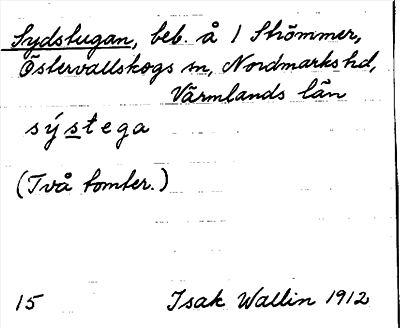 Sydstugan, beb. å 1 Strömmer,
Östervallskogs sn, Nordmarks hd,
Värmlands län
sýstega
(Två tomter.)
15 Isak Wallin 1912